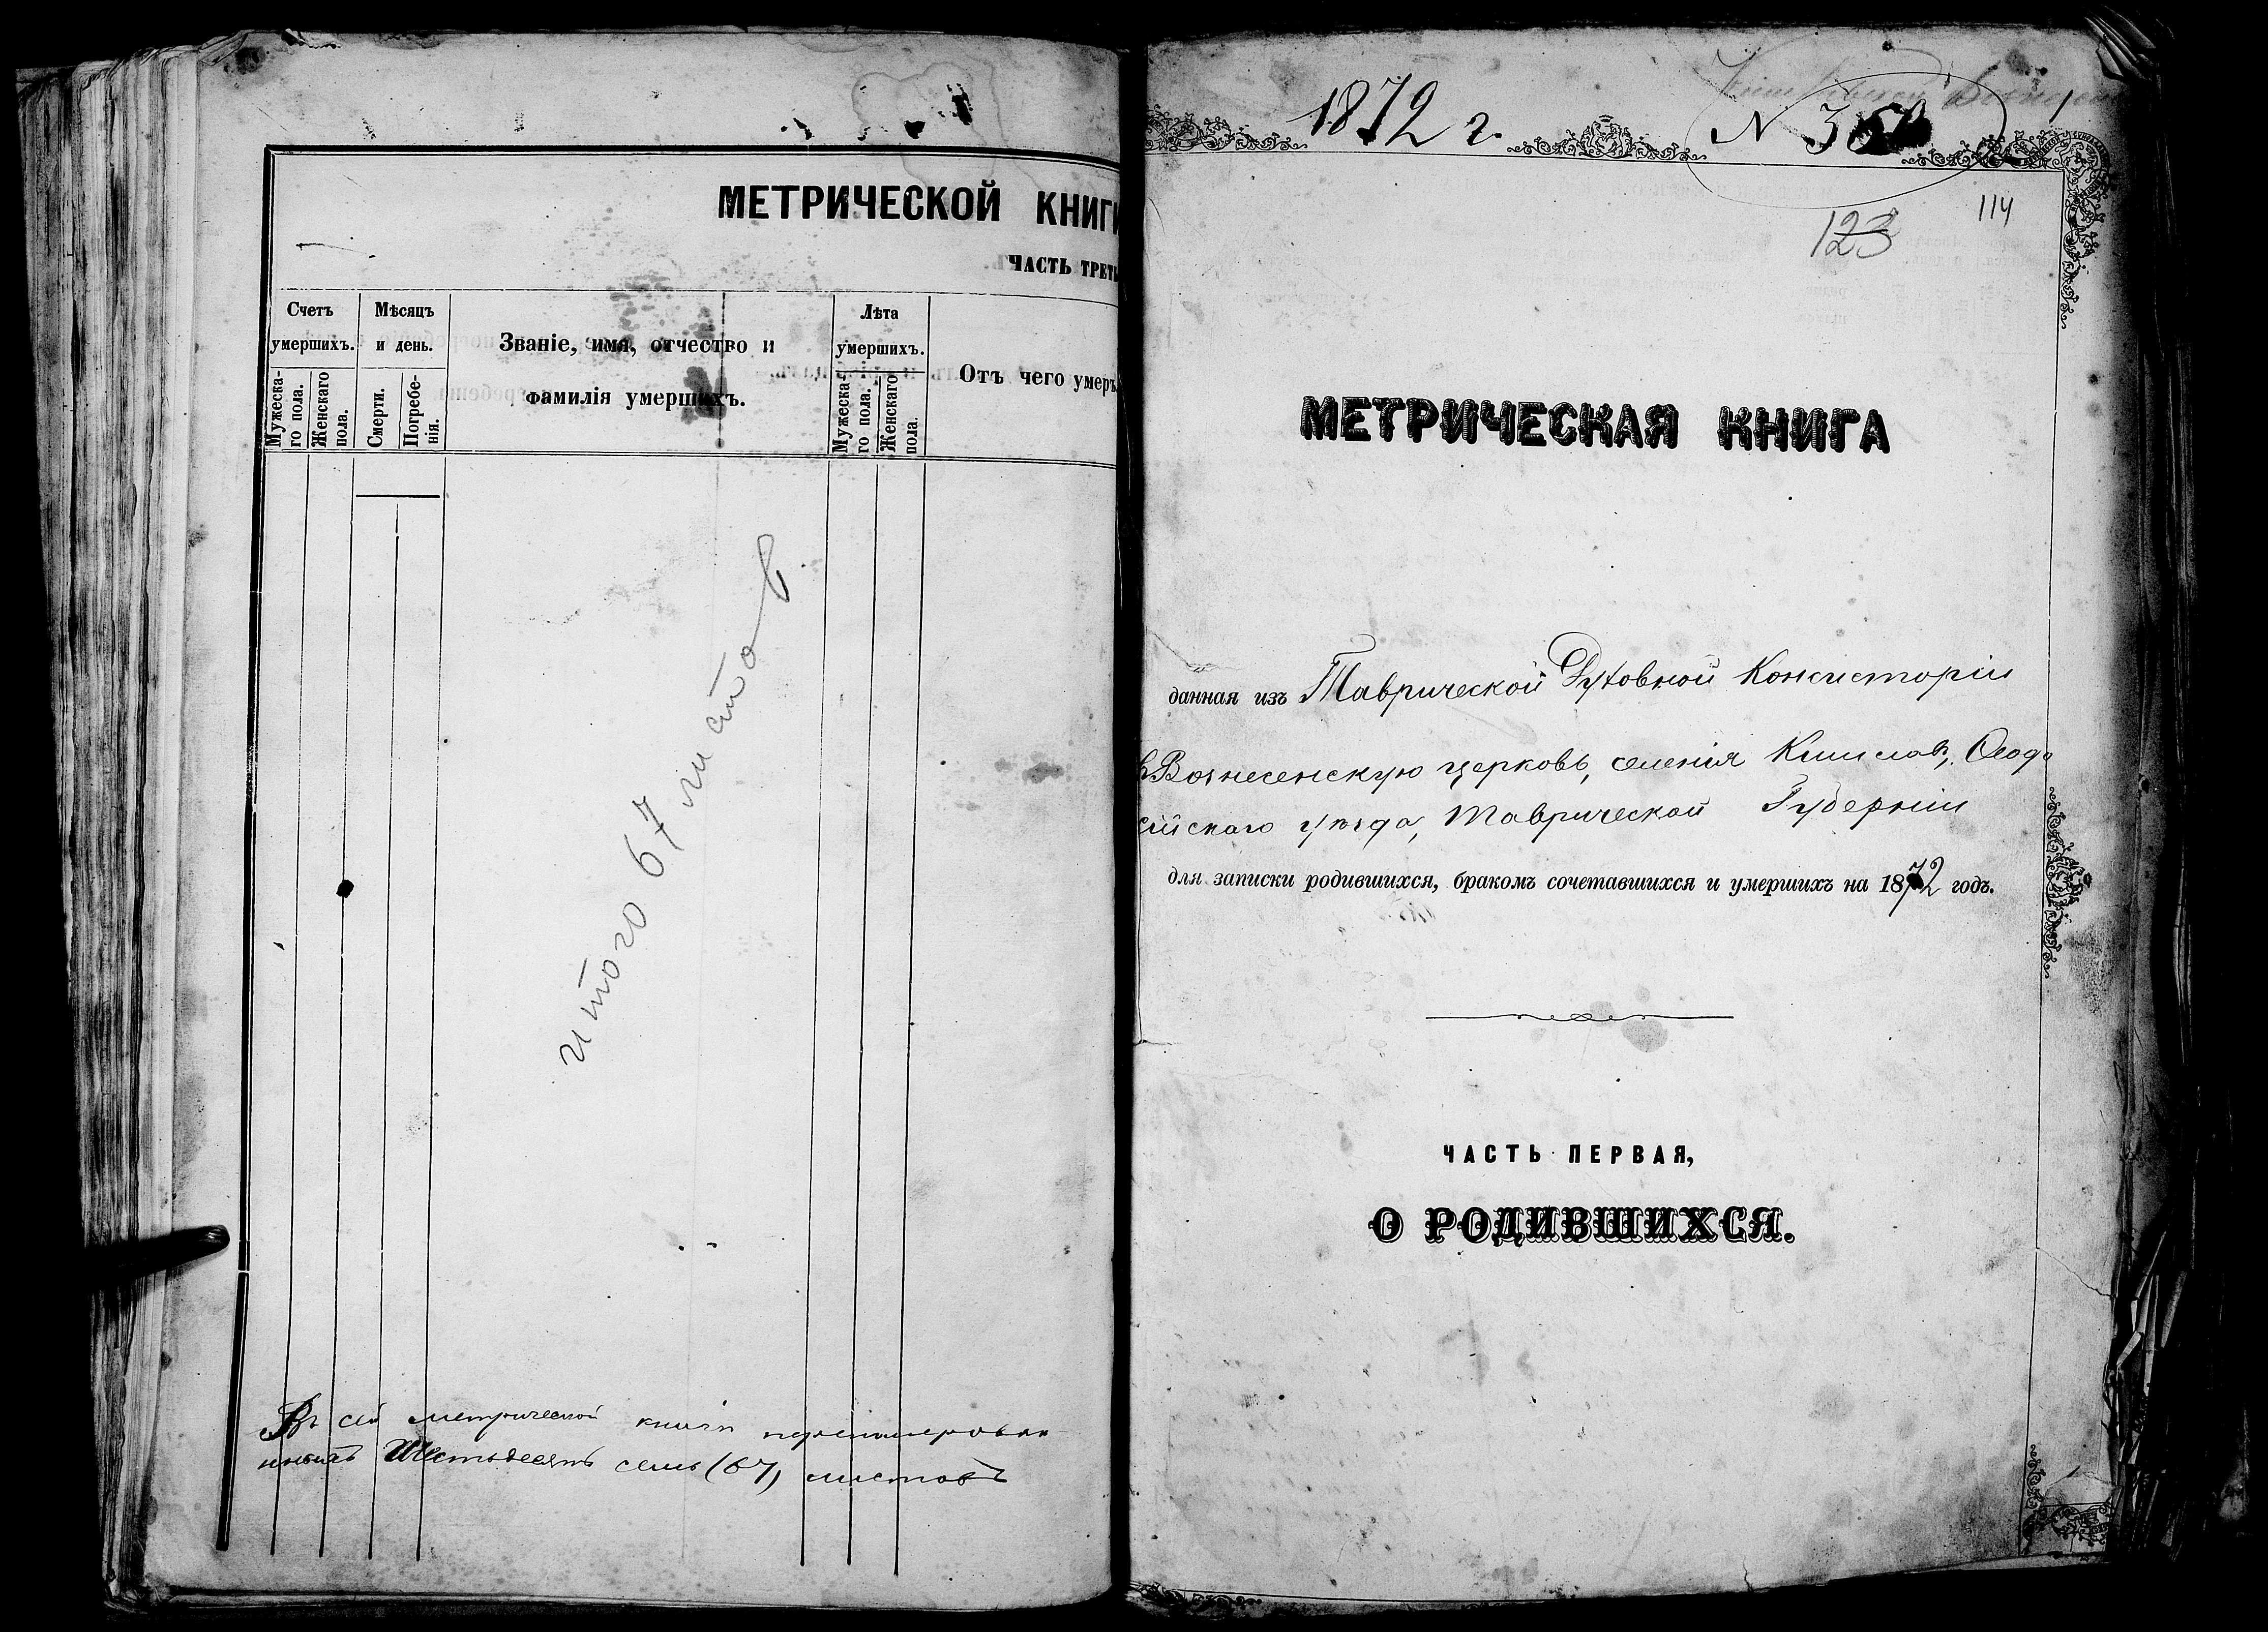 МЕТРИЧЕСКОЙ КНИГИ
ЧАСТЬ ТРЕТЬ
Счетъ умершихъ.
Мужеска-го пола.
Женскаго пола.
Мѣсяцъ и день.
Смерти.
Погребе-нія.
Званіе, имя, отчество и
фамилія умершихъ.
Лѣта умершихъ.
Мужеска-го пола.
Женскаго пола.
Отъ чего умеръ.
итого 67 листов
Въ сей метрической книги перенумерован
ныхъ Шестьдесятъ семь (67) листовъ
1872 г. N 3
1
114
123
МЕТРИЧЕСКАЯ КНИГА
данная изъ Таврической Духовной Консисторіи
въ Вознесенскую церковь, селенія Кишлавъ, Ѳеодо
сійскаго уѣзда, Таврической Губерніи
для записки родившихся, бракомъ сочетавшихся и умершихъ на 1872 годъ.
ЧАСТЬ ПЕРВАЯ,
О РОДИВШИХСЯ.